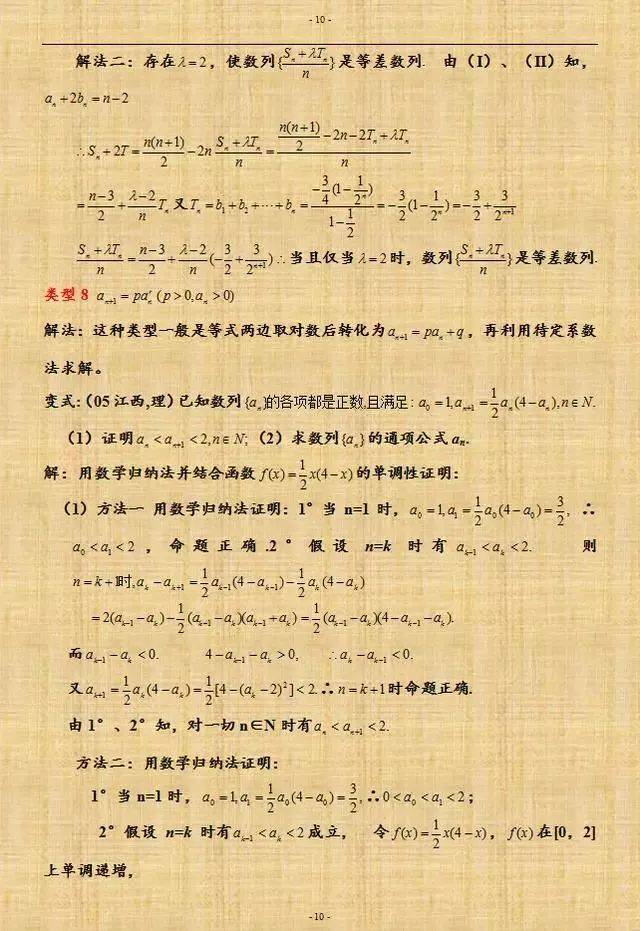 - 10 -
解法二：存在λ=2，使数列{(S_n+λT_n)/n}是等差数列. 由（I）、（II）知，
a_n+2b_n=n-2
∴S_n+2T=n(n+1)/2-2n (S_n+λT_n)/n=(n(n+1)/2-2n-2T_n+λT_n)/n
=(n-3)/2+(λ-2)/n T_n 又T_n=b_1+b_2+⋯+b_n=(-3/4(1-1/2^n))/(1-1/2)=-3/2(1-1/2^n)=-3/2+3/2^{n+1}
(S_n+λT_n)/n=(n-3)/2+(λ-2)/n(-3/2+3/2^{n+1})∴当且仅当λ=2时，数列{(S_n+λT_n)/n}是等差数列.
类型8 a_{n+1}=pa_n^r(p>0,a_n>0)
解法：这种类型一般是等式两边取对数后转化为a_{n+1}=pa_n+q，再利用待定系数
法求解。
变式：（05江西,理）已知数列{a_n}的各项都是正数,且满足：a_0=1,a_{n+1}=1/2a_n(4-a_n),n∈N.
（1）证明a_n<a_{n+1}<2,n∈N;（2）求数列{a_n}的通项公式a_n.
解：用数学归纳法并结合函数f(x)=1/2x(4-x)的单调性证明：
（1）方法一 用数学归纳法证明：1°当n=1时，a_0=1,a_1=1/2a_0(4-a_0)=3/2, ∴
a_0<a_1<2，命题正确.2°假设n=k时有a_{k-1}<a_k<2. 则
n=k+1时,a_k-a_{k+1}=1/2a_{k-1}(4-a_{k-1})-1/2a_k(4-a_k)
=2(a_{k-1}-a_k)-1/2(a_{k-1}-a_k)(a_{k-1}+a_k)=1/2(a_{k-1}-a_k)(4-a_{k-1}-a_k).
而a_{k-1}-a_k<0. 4-a_{k-1}-a_k>0, ∴a_k-a_{k-1}<0.
又a_{k+1}=1/2a_k(4-a_k)=1/2[4-(a_k-2)^2]<2.∴n=k+1时命题正确.
由1°、2°知，对一切n∈N时有a_n<a_{n+1}<2.
方法二：用数学归纳法证明：
1°当n=1时，a_0=1,a_1=1/2a_0(4-a_0)=3/2,∴0<a_0<a_1<2；
2°假设n=k时有a_{k-1}<a_k<2成立， 令f(x)=1/2x(4-x)，f(x)在[0，2]
上单调递增，
- 10 -